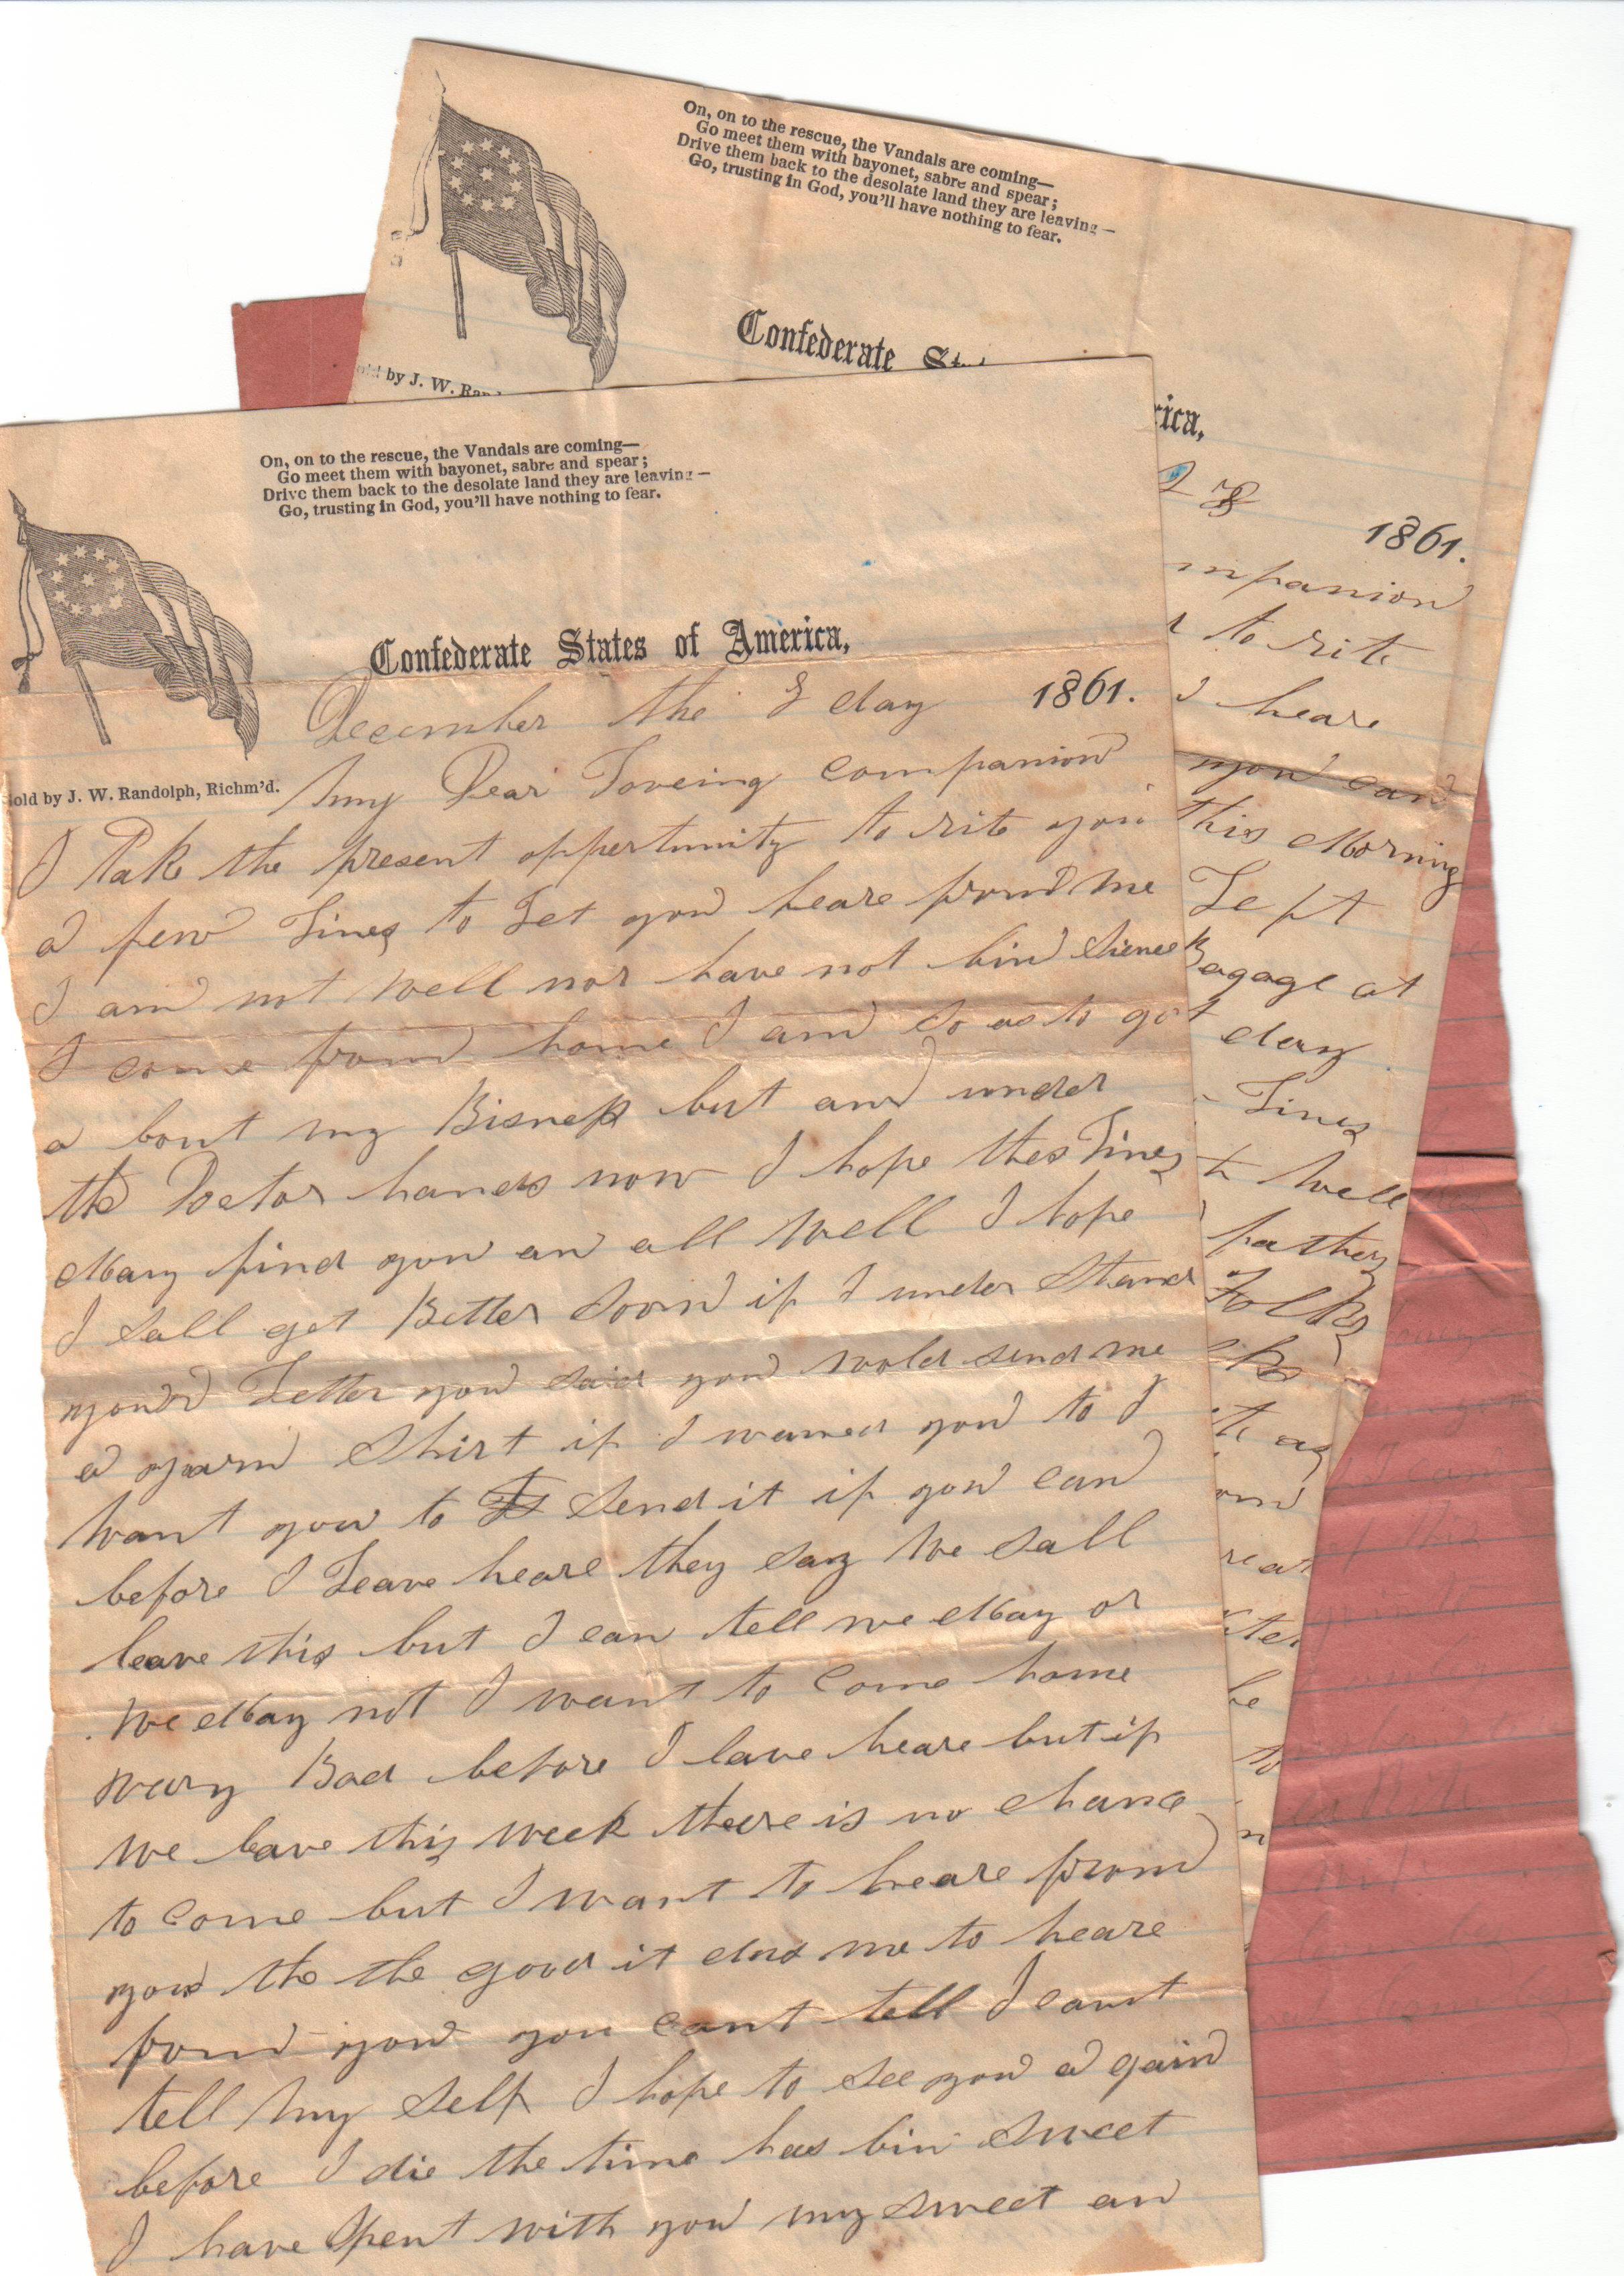 On, on to the rescue, the Vandals are coming—
Go meet them with bayonet, sabre and spear;
Drive them back to the desolate land they are leaving—
Go, trusting in God, you'll have nothing to fear.
Confederate
by J. W.
rica,
1861.
mpanion
to rite
heare
you can
this Morning
Left
Bagage at
day
Lines
Well
father
Folks
On, on to the rescue, the Vandals are coming—
Go meet them with bayonet, sabre and spear;
Drive them back to the desolate land they are leaving—
Go, trusting in God, you'll have nothing to fear.
Confederate States of America,
December the day 1861.
old by J. W. Randolph, Richm'd.
My Dear Loveing companion
I Take the present oppertunity to rite you
a few Lines to Let you heare from me
I am not well nor have not bin Sience
I come from home I am so as to go
a bout my Bisness but am under
the Doctor hands now I hope thes Lines
May find you an all Well I hope
I sall get Better soon if I under stand
your Letter you said you wold send me
a yarn Shirt if I waned you to I
Want you to send it if you can
before I Leave heare they say We sall
leave this but I can tell we May or
We May not I want to come home
very Bad before I lave heare but if
We leave this Week theere is no chance
to come but I want to heare from
you the the good it dus me to heare
from you you cant tell I cant
tell my Self I hope to see you a gain
before I die the time has bin sweet
I have Spent with you my sweet an